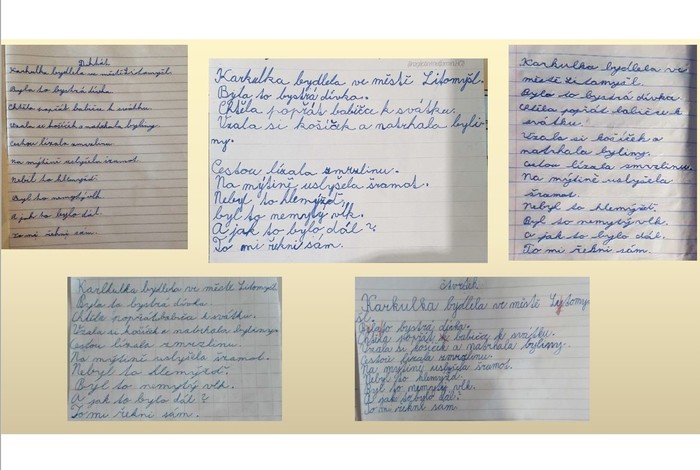 Diktát
Karkulka bydlela ve městě Litomyšl.
Byla to bystrá dívka.
Chtěla popřát babičce k svátku.
Vzala si košíček a natrhala byliny.
Cestou lízala zmrzlinu.
Na mýtině uslyšela šramot.
Nebil to hlemýžď.
Byl to nemytý vlk.
A jak to bylo dál.
To mi, řekni, sám.
Karkulka bydlela ve městě Litomyšl.
Byla to bystrá dívka.
Chtěla popřát babičce k svátku.
Vzala si košíček a natrhala byli-
ny.
Cestou lízala zmrzlinu.
Na mýtině uslyšela šramot.
Nebyl to hlemýžď,
byl to nemytý vlk.
A jak to bylo dál?
To mi řekni sám.
Karkulka bydlela ve
městě Litomyšl.
Bylo to bystrá dívka.
Chtěla popřát babičce k
svátku.
Vzala si košíček a
natrhala byliny.
Cestou lízala zmrzlinu.
Na mýtině uslyšela
šramot.
Nebyl to hlemýžď.
Byl to nemytý vlk.
A jak to bylo dál.
To mi řekni sám.
Karlkulka bydlela ve městě Litomyšl.
Byla to bystrá dívka.
Chtěla popřát babičce k svátku.
Vzala si košíček a natrhala byliny.
Cestou lízala zmrzlinu.
Na mýtině uslyšela šramot.
Nebyl to hlemýžď.
Byl to nemytý vlk.
A jak to bylo dál?
To mi řekni sám.
čtvrtek
Karkulka bydlela ve městě Litomy
šl.
Byla to bystrá dívka.
Chtěla popřát babičce k svátku.
Vzala si košíček a natrhala byliny.
Cestou lízala zmrzlinu.
Na mýtině uslyšela šramot.
Nebyl to hlemýžď.
Byl to nemytý vlk.
A jak to bylo dál?
To mi řekni sám.